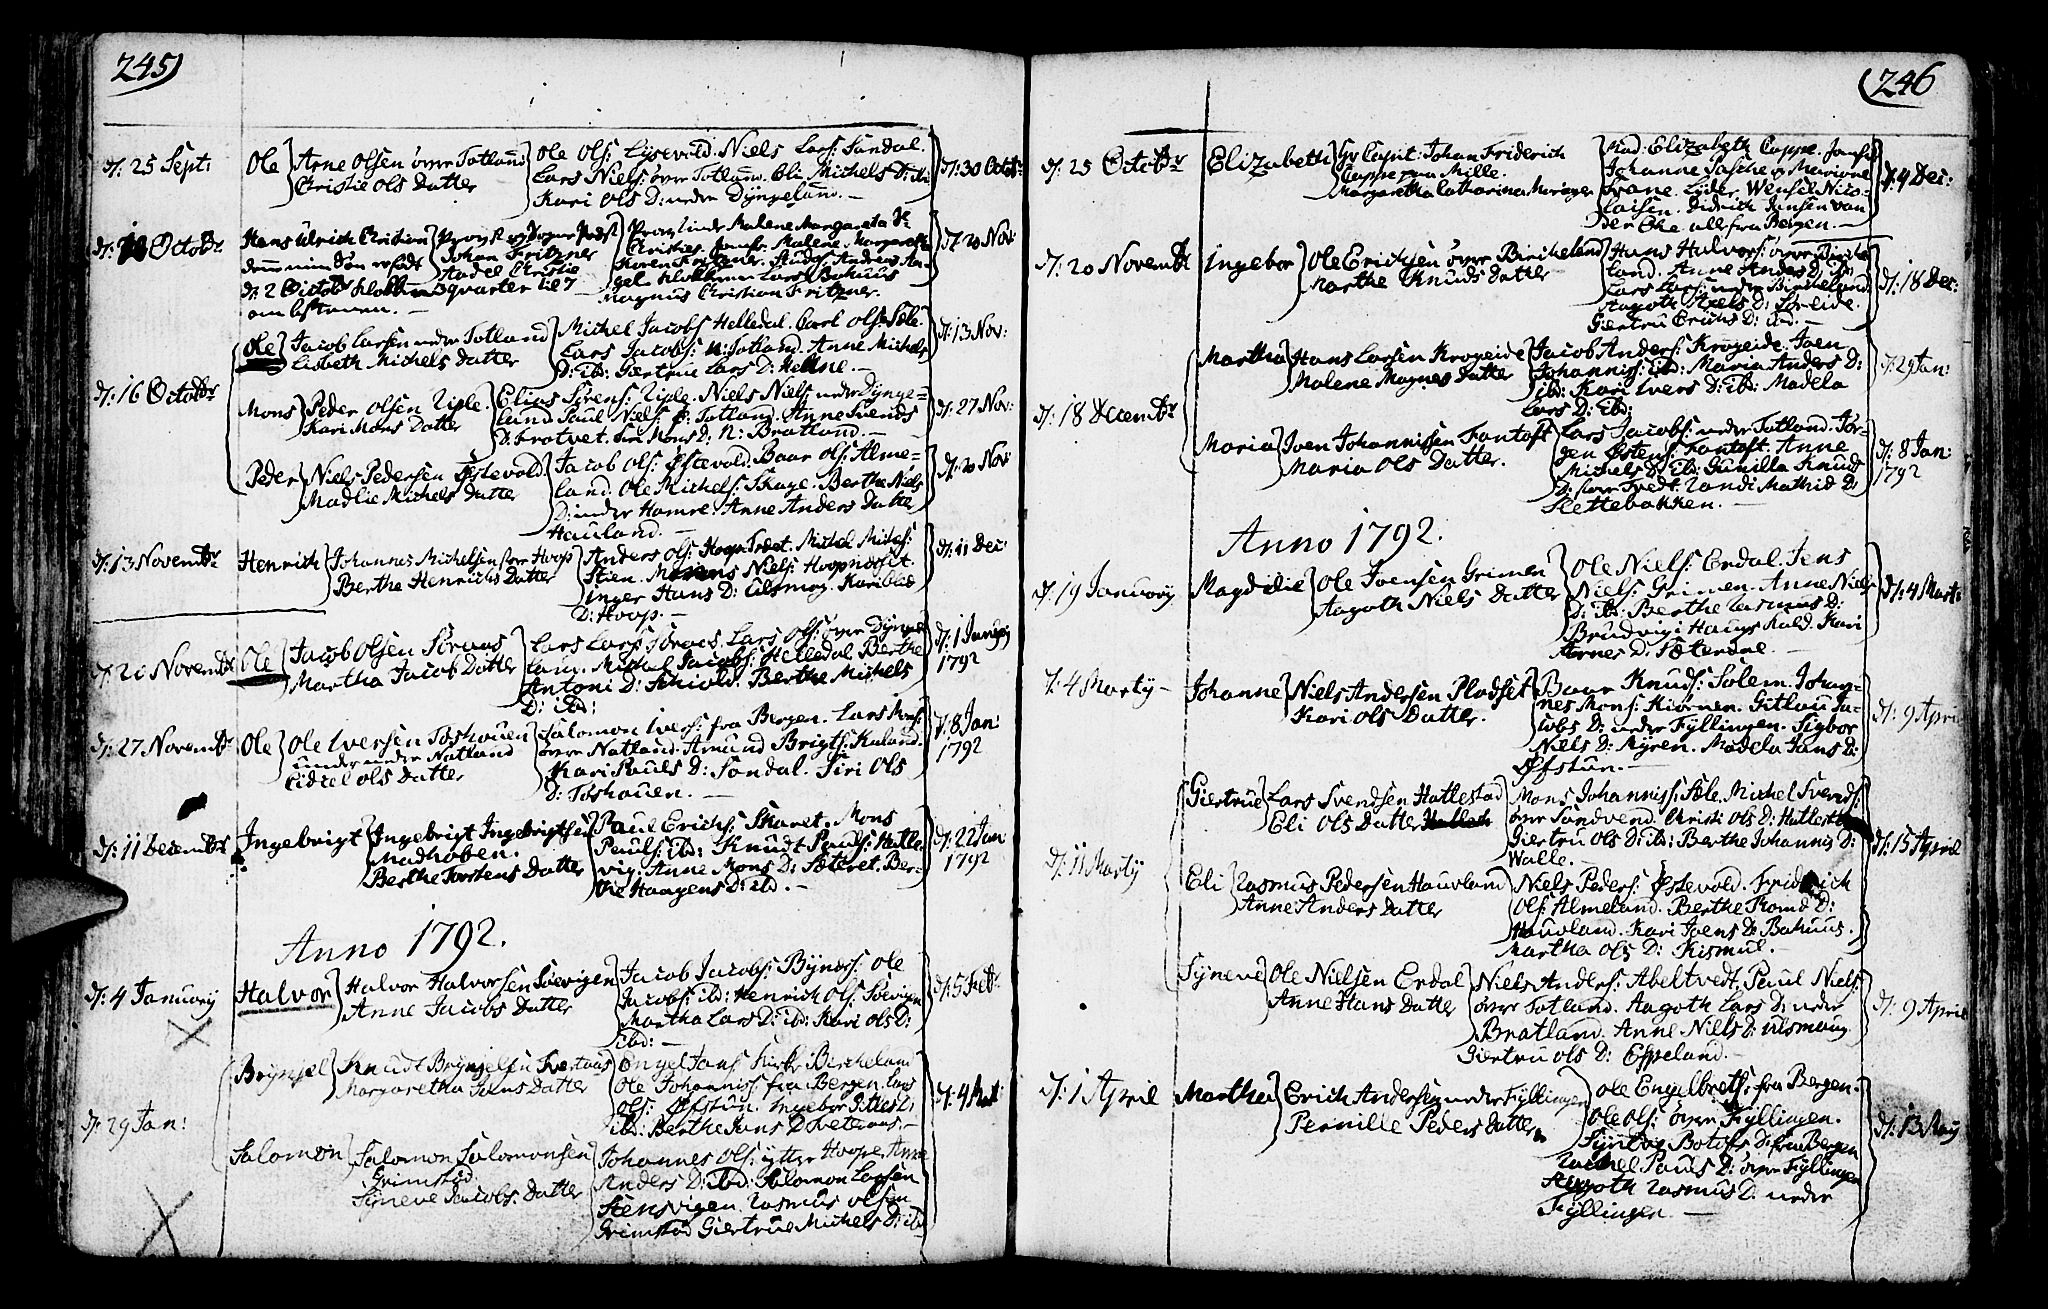 245)
d: 25 Sept:
Ole
Arne Olsen övre Totland
Christie Ols Datter
Ole Ols: Lysevold. Niels Lars: Sandal.
Lars Niels: övre Totland. Eli Michels D: ibi
Kari Ols D: nedre Dyngeland. —
d: 30 Octob:
d: 10 Octobr
Hans Ulrich Christian
denne min Søn er født
d: 2 Octobr Klokken 3 quarter til 7
om Aftenen. —
Provst og Sogne Præst
Johan Fritzner
Aadel Christie
Provstinde Malene Margareta
Christies. Jomfr: Malene Margaretha
Karen Fritzner. Studs: Andreas An-
gel. Klokkeren Lars Bahuus
Magnus Christian Fritzner.
d: 20 Nov:
d: 16 Octobr
Ole
Jacob Larsen nedre Totland
Lisbeth Michels Datter
Michel Jacobs: Helledal. Carl Ols: Sæle.
Lars Jacobs: N: Totland. Anne Michels
D: ibi: Giertrue Lars D: Hellne —
d: 13 Nov:
Mons
Peder Olsen Riple.
Kari Mons Datter
Elias Sörens: Riple. Niels Niels: nedre Dynge-
land. Paul Niels: Ö: Totland. Anne Svends
D: bratvet. Siri Mons D: N: Bratland. —
d: 27 Nov:
Peder
Niels Pedersen Østevold
Madlie Michels Datter
Jacob Ols: Østevold. Baar Ols: Alme-
land. Ole Michels: Skage. Berthe Niels
D: nedre Hamre. Anne Anders Datter
Hauland. —
d: 20 Nov:
d: 13 Novembr
Henrich
Johannes Michelsen store Hoop
Berthe Henrichs Datter
Anders Ols: Hoops Træet. Michel Michels:
Stien. Mons Niels: Hoopnæset.
Inger Hans D: Tilsmog. Kari
D: Hoop. —
d: 11 Dec:
d: 21 Novembr
Ole
Jacob Olsen Straus
Martha Jacob Datter
Lars Lars: Straus. Lars Ols: övre Dynge-
land. Michel Jacobs: Helledal. Berthe
Antoni D: Schiold. Berthe Michels
D: ibd:
d: 1 January
1792
d: 27 Novembr
Ole
Ole Iversen Toshouen
under nedre Natland
Eidtel Ols Datter
Salomon Ivers: fra Bergen. Lars Mons:
övre Natland. Amund Brigts: Kaland.
Kari Pauls D: Sandal. Siri Ols
D: Toshouen. —
d: 8 Jan:
1792
d: 11 Decembr
Ingebrigt
Ingebrigt Ingebrigtsen
Madhoben.
Berthe Torstens Datter
Paul Erichs: Skaret. Mons
Pauls: ibi: Knudt Pauls: Hatle
vig. Anne Mons D: Sæteret. Ber-
the Haagens D: ibd. —
d: 22 Jan
1792
Anno 1792.
d: 4 January
Halvor
Halvor Halvorsen Söevigen
Anne Jacobs Datter
Jacob Jacobs: Byness: Ole
Jacobs: ibd: Henrich Ols: Söevigen
Martha Lars D: ibd: Kari Ols D:
ibd: —
d: 5 Febr
d: 29 Jan:
Brynjel
Knudt Brynjelsen Tvetraas
Margaretha Jans Datter
Engel Jans: Kirke Bircheland
Ole Johanniss: fra Bergen. Lars
Ols: Øfstun. Ingebor
ibd: Berthe Jans D Tveteraas. —
Salomon
Salomon Salomonsen
Grimstad
Synneve Jacobs: Datter
Johannes Ols: ytre Hoope. Anne
Anders D: ibd: Salomon Larsen
Stensvigen. Rasmus Olsen
Grimstad Giertrue Michels D: ibd
(246
d: 25 Octobr
Elizabeth
Hr Capit: Johan Friderich
Cappe von Mille.
Margaretha Catharina
Mad: Elizabeth Cappe. Jomfr:
Johanne Sasche og Mariane
Irane. Lyder Wensel Nico-
laisen. Didrich Jansen van
der Ohe alle fra Bergen. —
d: 4 Dec:
d: 20 Novembr
Ingebor
Ole Erichsen övre Bircheland
Marthe Knuds Datter
Hans Halvors: övre Birche
land. Anne Anders D: ibi
Lars Lars: nedre Bircheland
Aagoth Axels D: Söreide.
Giertru Erichs D: ibd: —
d: 18 Dec:
d: 18 Decembr
Martha
Hans Larsen Krogeide
Malene Magnes Datter
Jacob Anders: Krogeide. Joen
Johanniss: ibd: Maria Anders D:
ibd: Kari Ivers D: ibd: Madela
Lars D: ibd:
d: 29 Jan:
Maria
Iven Johannissen Fantoft
Maria Ols Datter.
Lars Jacobs: nedre Totland. Tor-
gen Østens: Fantoft. Anne
Michels D: ibd: Gunilla Knuds
D: store Tvedt. Randi Mathis D:
Slettebakken. —
d: 8 Jan:
1792
Anno 1792.
d: 19 January
Magdelie
Ole Ivensen Grimen
Aagoth Niels Datter
Ole Niels: Erdal. Jens
Niels: Grimen. Anne Niels
D: ibi: Berthe Rasmus D:
Brudvig i Haus Kald. Kari
Arnes D: Sæterdal. —
d: 4 Mart:
d: 4 Martij —
Johanne
Niels Andersen Pladset
Kari Ols Datter.
Baar Knuds: Solem. Johan-
nes Mons: Kiörnen. Gitlau Ja-
cobs D: nedre Fyllingen. Sigbor
Niels D: Myren. Madela Jans D:
Øfstun. —
d: 9 April
d: 11 Martij
Giertrue
Lars Svendsen Hatlestad
Eli Ols Datter
Mons Johanniss: Sæle. Michel Svends:
övre Sandvend. Christi Ols D: Hatlestad
Giertru Ols D: ibd: Berthe Johannis D:
Walle. —
d: 15 April
Eli
Rasmus Pedersen Hauvland
Anne Anders Datter
Niels Peders: Østevold. Friderich
Ols: Almeland. Berthe Romd D:
Hauvland. Kari Joens D: Bahuus.
Martha Ols D: Kismul. —
Syneve
Ole Nielsen Erdal
Anne Hans Datter
Niels Anders: Abeltvedt. Paul Niels:
övre Totland. Aagoth Lars D: nedre
Bratland. Anne Niels D: Ulsmaug.
Giertru Ols D: Espeland. —
d: 9 April
d: 1 April
Martha
Erich Andersen nedre Fyllingen
Pernille Peders Datter
Ole Engelbrets: fra Bergen.
Ole Ols: övre Fyllingen.
Botolfs D: fra Bergen
Rachel Pauls D: övre Fyllingen
Aagoth Rasmus D: nedre
Fyllingen. —
d: 13 May